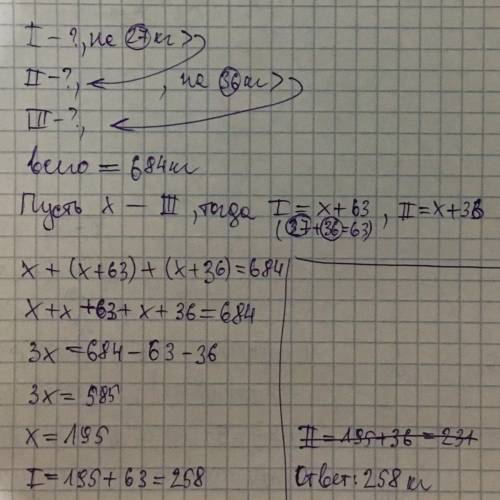 I – ?, на 27 кг >
II – ?, , на 36 кг >
III – ?,
всего = 684 кг
Пусть x – III, тогда I = x + 63, II = x + 36
(27 + 36 = 63)
x + (x + 63) + (x + 36) = 684
x + x + 63 + x + 36 = 684
3x = 684 – 63 – 36
3x = 585
x = 195
I = 195 + 63 = 258
II = 195 + 36 = 231
Ответ: 258 кг